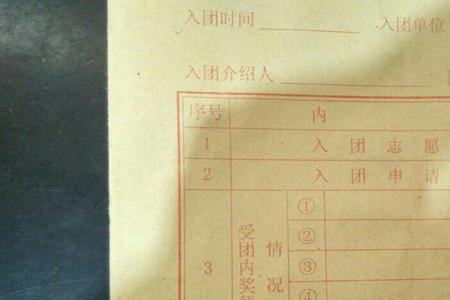 入团时间 入团单位
入团介绍人
序号 内
1 入团志愿
2 入团申请
3 受团内奖 情况
①
②
③
④